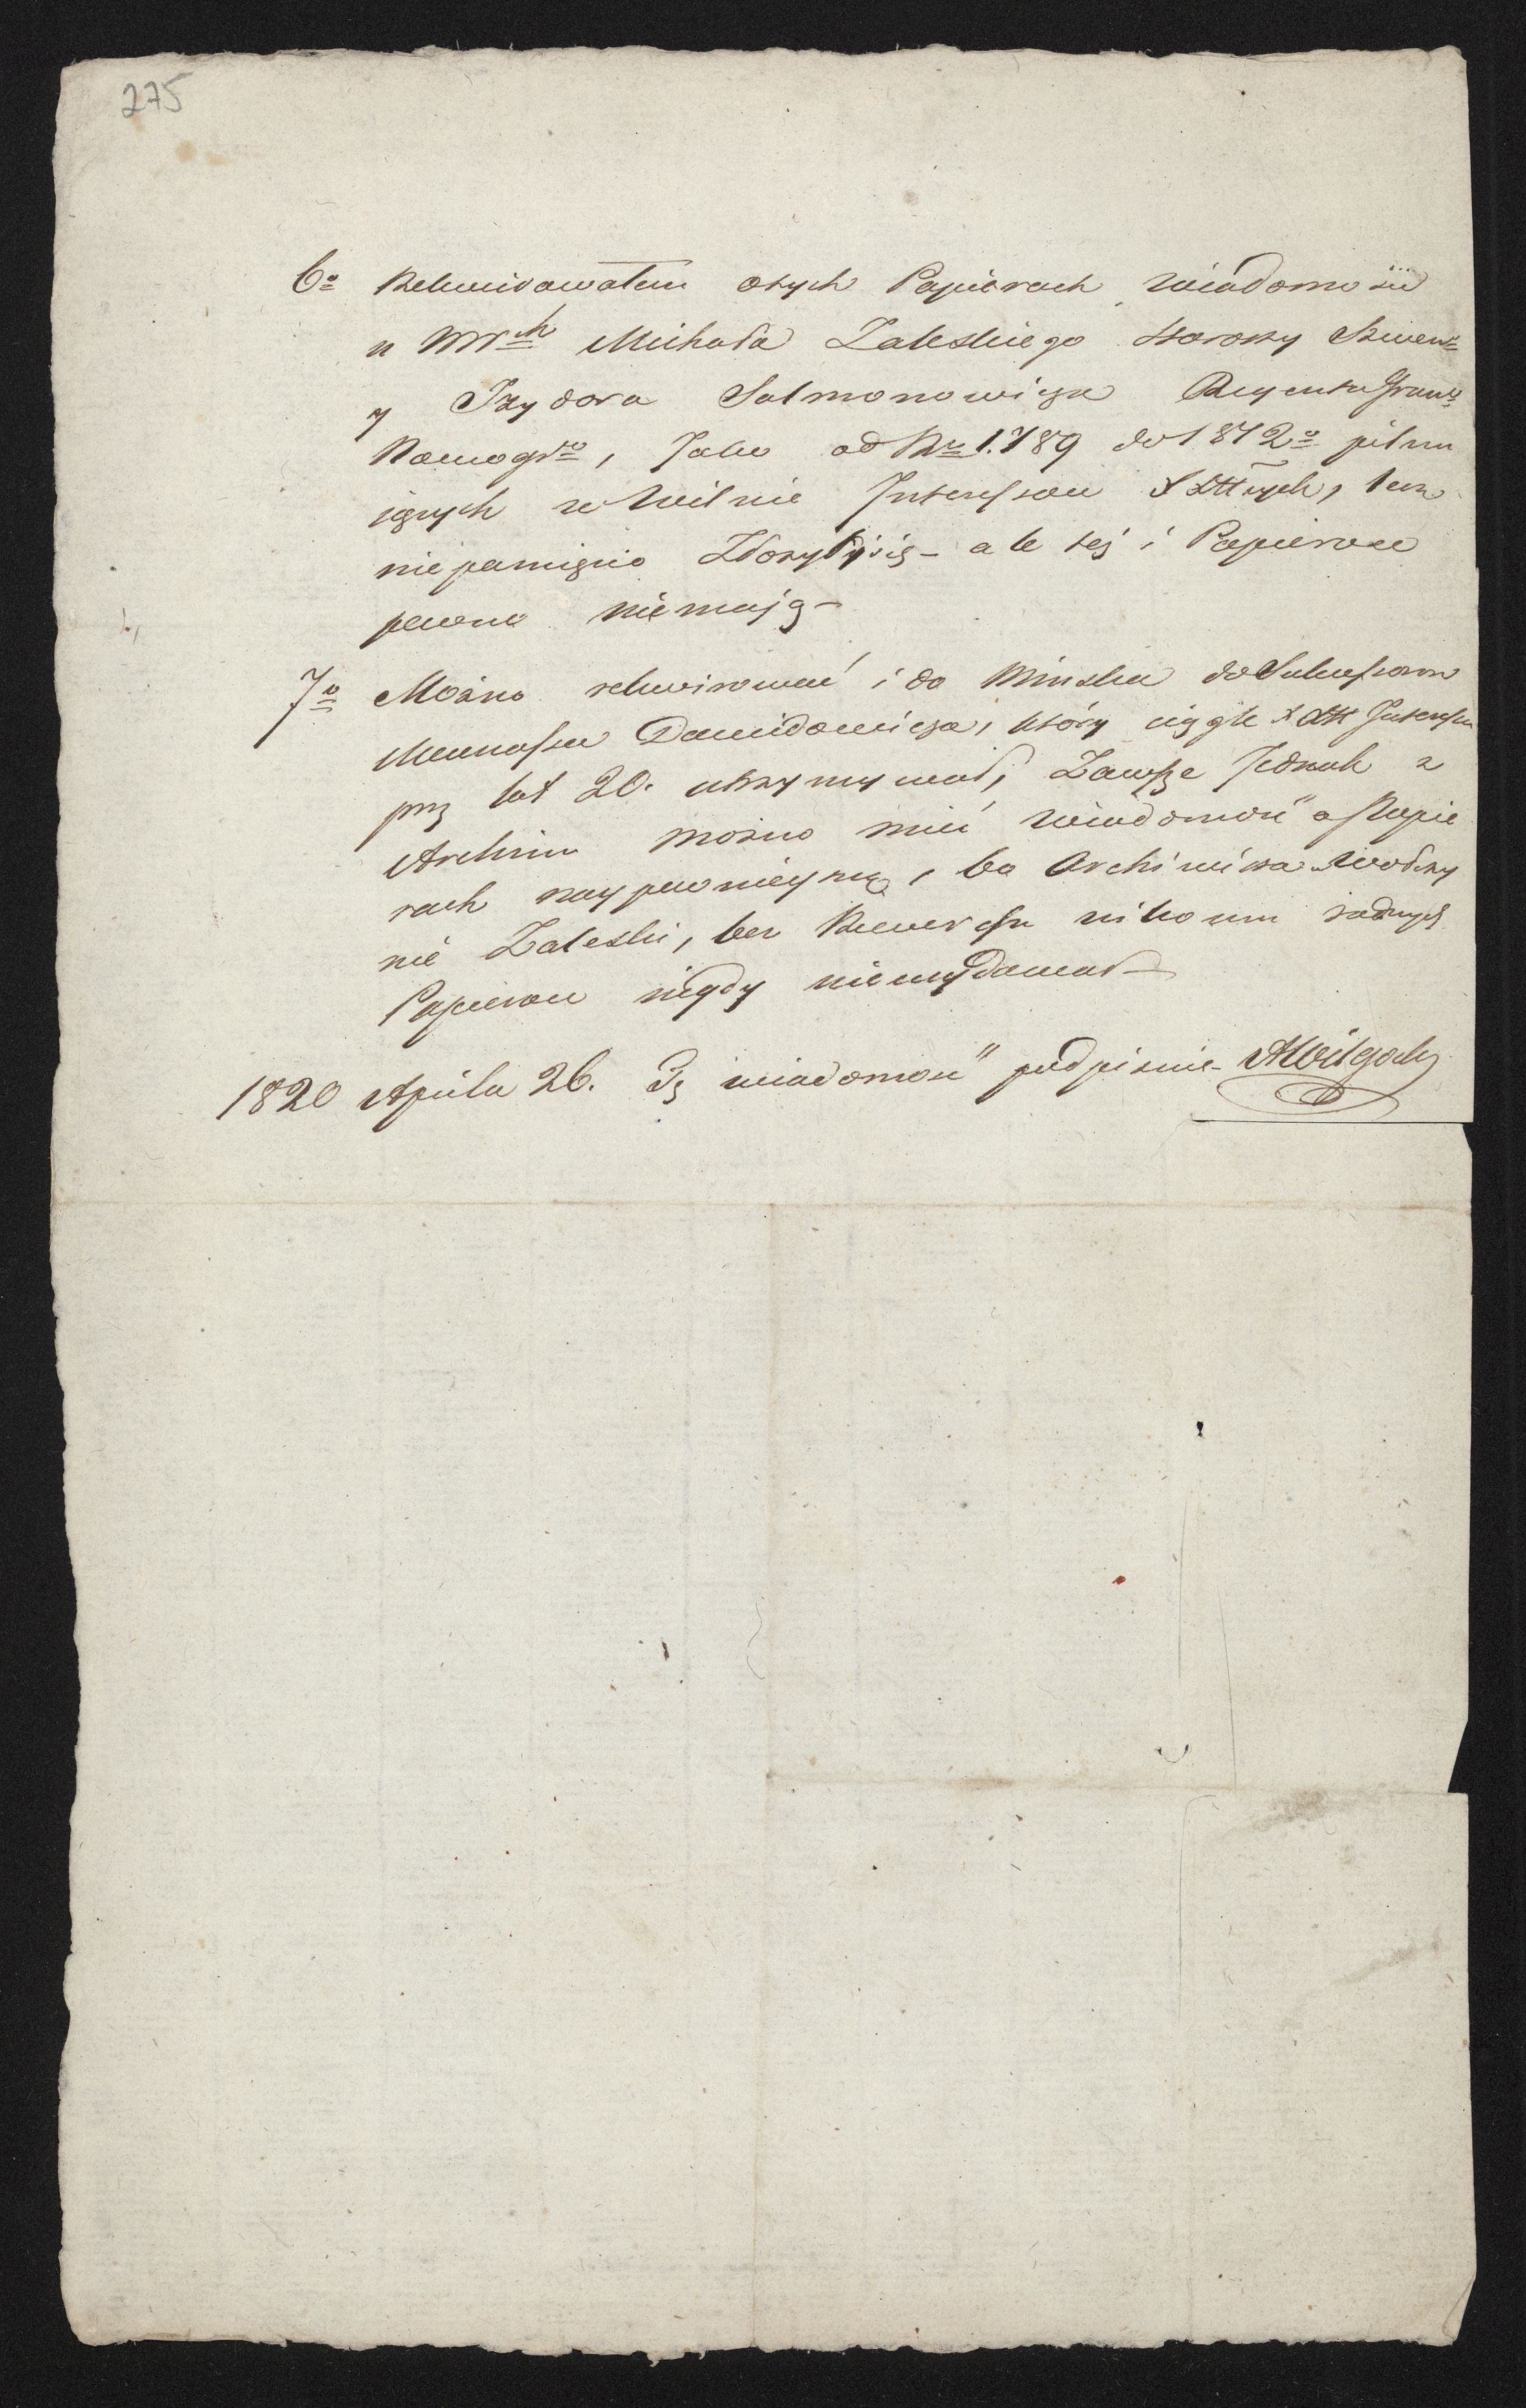 275
6o Rekwirowałem o tych Papierach wiadomości
u WWch Michała Zaleskiego Starosty
y Izydora Salmonowicza Regenta Gran:
Nowogro, Jako od Ru 1.789 do 1812o pilnu
iących w Wilnie Interessow XXttwych, lecz
niepamięcio Złożyli się - ale tej i Papierow
pewno niemają -
7o Można rekwirować i do Minska do Sukcessorow
Manassa Dawidowicza, który ciągle XXtt Interessa
prz lat 20. utrzymywał, Zawsze Jednak z
Archiwu można mieć wiadomość o Papie
rach naypewnieyszą, bo Archiwista
nie Zaleski, bez Rewersu nikomu żadnych
Papierow nigdy niewydawał -
1820 Apryla 26. Tę wiadomość podpisuie -